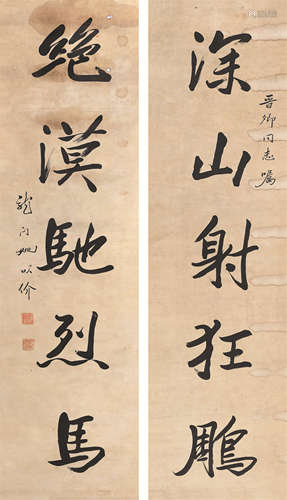 深山射狂鵰
晋卿同志嘱
絶漠馳烈馬
龍门姚以价